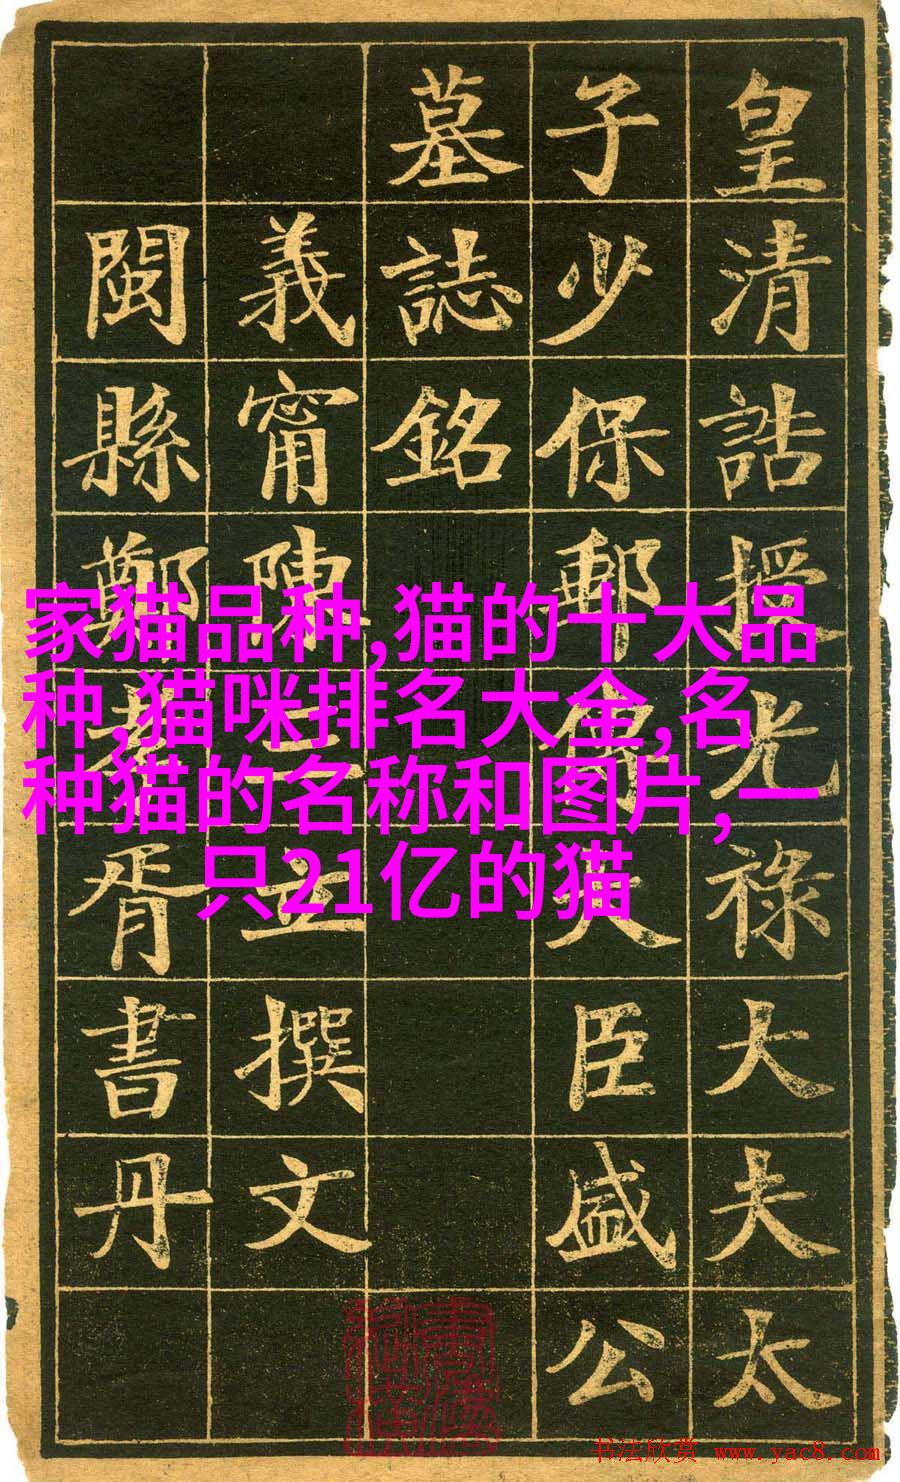 皇清誥授光祿大夫太
子少保郵傳大臣盛公
墓誌銘
義甯陳三立撰文
閩縣鄭孝胥書丹
家猫品种,猫的十大品
种,猫咪排名大全,名
种猫的名称和图片,一
只21亿的猫
书法欣赏 www.yac8.com